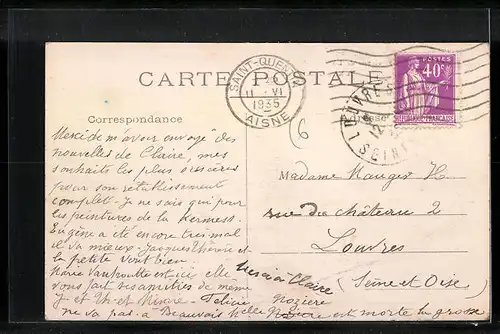 CARTE POSTALE
SAINT-QUENTIN
11 VI
1935
AISNE
POSTES
40c
Correspondance
Adresse
Merci de m'avoir envoyé des
nouvelles de Claire, mes
souhaits les plus sincères
pour son rétablissement
complet. Je ne sais qui pour
les peintures de la Kermess.
Eugène a été encore très mal
il va mieux - Jacques Thérèse et
la petite vont bien.
Marie Vanhoutte est ici elle
vous fait ses amitiés de même
J. et Th. et Mimie -
ne va pas à Beauvais Melle Nozière est morte la grosse
Nozière
Merci à Claire
6
Madame Mauger H.
rue du château 2
Louvres
(Seine et Oise)